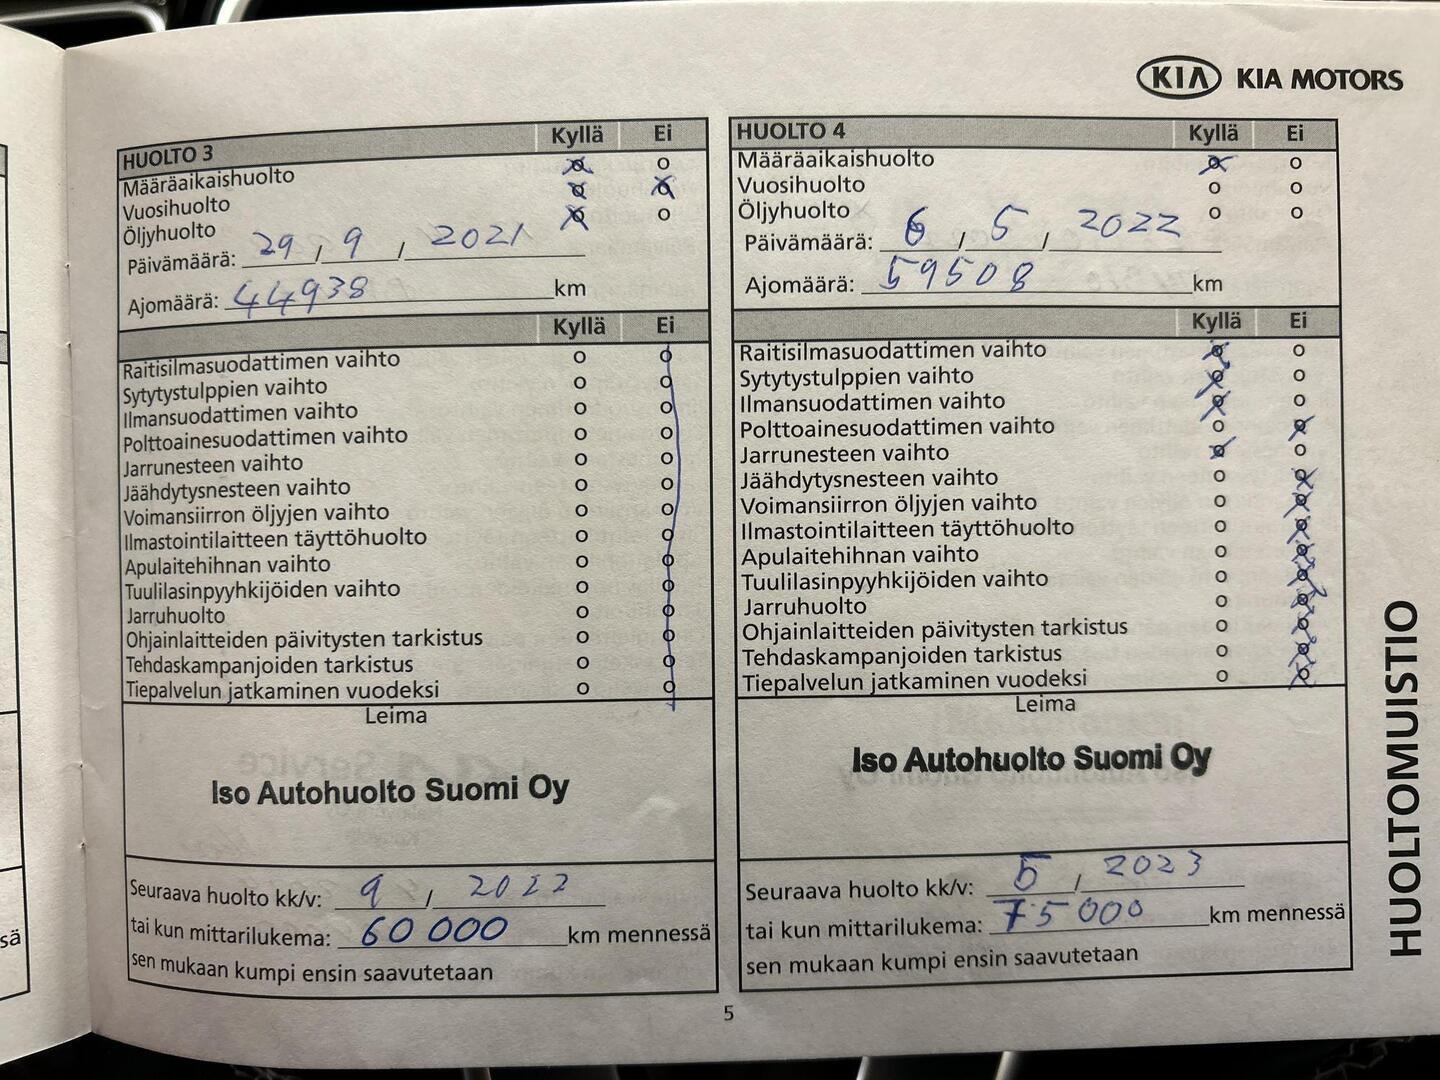 KIA KIA MOTORS
HUOLTO 3 Kyllä Ei
Määräaikaishuolto
Vuosihuolto
Öljyhuolto
Päivämäärä: 29 / 9 / 2021
Ajomäärä: 44938 km
Kyllä Ei
Raitisilmasuodattimen vaihto
Sytytystulppien vaihto
Ilmansuodattimen vaihto
Polttoainesuodattimen vaihto
Jarrunesteen vaihto
Jäähdytysnesteen vaihto
Voimansiirron öljyjen vaihto
Ilmastointilaitteen täyttöhuolto
Apulaitehihnan vaihto
Tuulilasinpyyhkijöiden vaihto
Jarruhuolto
Ohjainlaitteiden päivitysten tarkistus
Tehdaskampanjoiden tarkistus
Tiepalvelun jatkaminen vuodeksi
Leima
Iso Autohuolto Suomi Oy
Seuraava huolto kk/v: 9 / 2022
tai kun mittarilukema: 60 000 km mennessä
sen mukaan kumpi ensin saavutetaan
HUOLTO 4 Kyllä Ei
Määräaikaishuolto
Vuosihuolto
Öljyhuolto
Päivämäärä: 6 / 5 / 2022
Ajomäärä: 59508 km
Kyllä Ei
Raitisilmasuodattimen vaihto
Sytytystulppien vaihto
Ilmansuodattimen vaihto
Polttoainesuodattimen vaihto
Jarrunesteen vaihto
Jäähdytysnesteen vaihto
Voimansiirron öljyjen vaihto
Ilmastointilaitteen täyttöhuolto
Apulaitehihnan vaihto
Tuulilasinpyyhkijöiden vaihto
Jarruhuolto
Ohjainlaitteiden päivitysten tarkistus
Tehdaskampanjoiden tarkistus
Tiepalvelun jatkaminen vuodeksi
Leima
Iso Autohuolto Suomi Oy
Seuraava huolto kk/v: 5 / 2023
tai kun mittarilukema: 75 000 km mennessä
sen mukaan kumpi ensin saavutetaan
HUOLTOMUISTIO
5